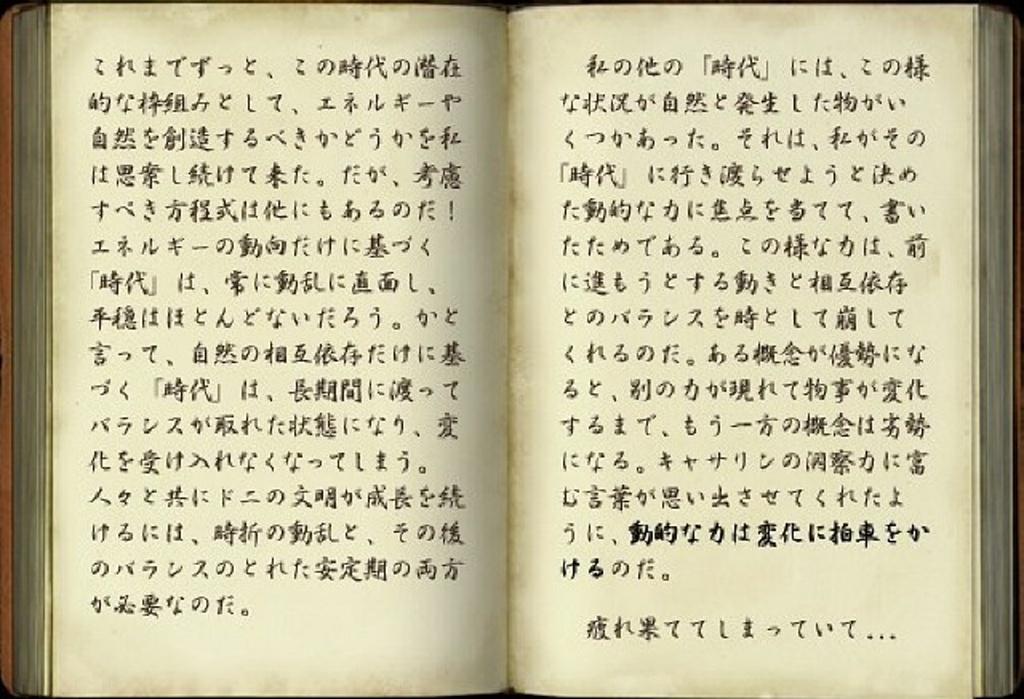 これまでずっと、この時代の潜在
的な枠組みとして、エネルギーや
自然を創造するべきかどうかを私
は思案し続けて来た。だが、考慮
すべき方程式は他にもあるのだ！
エネルギーの動向だけに基づく
「時代」は、常に動乱に直面し、
平穏はほとんどないだろう。かと
言って、自然の相互依存だけに基
づく「時代」は、長期間に渡って
バランスが取れた状態になり、変
化を受け入れなくなってしまう。
人々と共にドニの文明が成長を続
けるには、時折の動乱と、その後
のバランスのとれた安定期の両方
が必要なのだ。
私の他の「時代」には、この様
な状況が自然と発生した物がい
くつかあった。それは、私がその
「時代」に行き渡らせようと決め
た動的な力に焦点を当てて、書い
たためである。この様な力は、前
に進もうとする動きと相互依存
とのバランスを時として崩して
くれるのだ。ある概念が優勢にな
ると、別の力が現れて物事が変化
するまで、もう一方の概念は劣勢
になる。キャサリンの洞察力に富
む言葉が思い出させてくれたよ
うに、動的な力は変化に拍車をか
けるのだ。
疲れ果ててしまっていて...